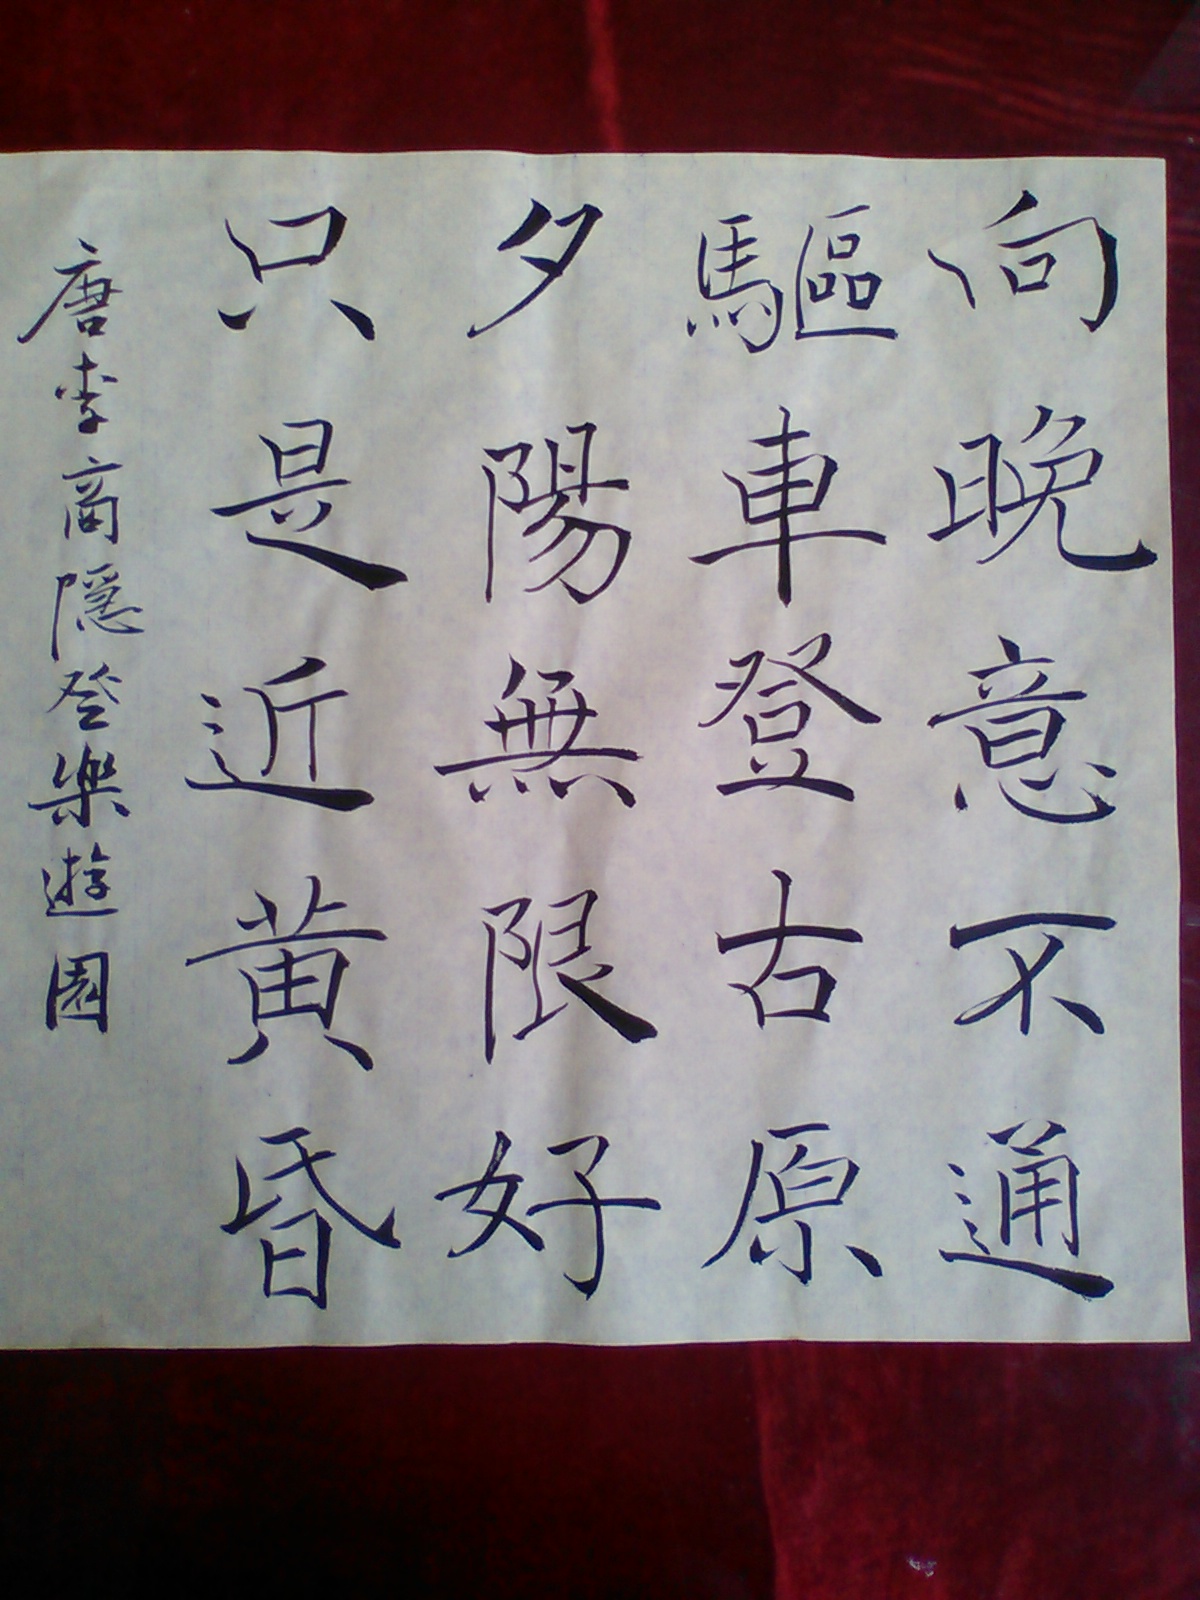 向晚意不通
驅車登古原
夕陽無限好
只是近黄昏
唐李商隱登樂遊園